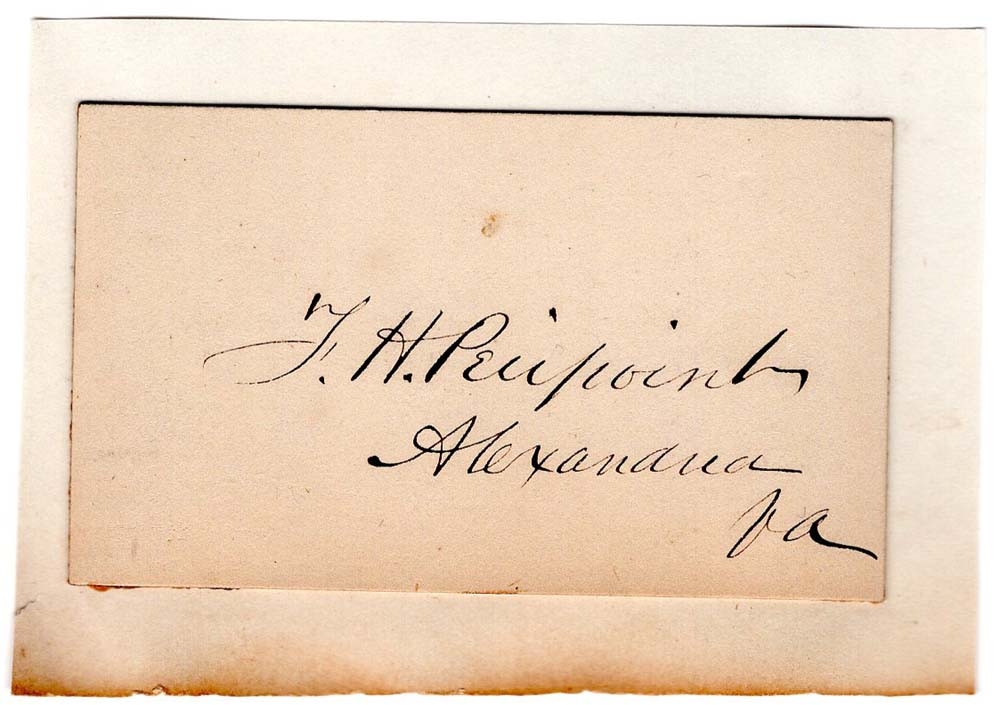 F. H. Peirpoint
Alexandria
Va